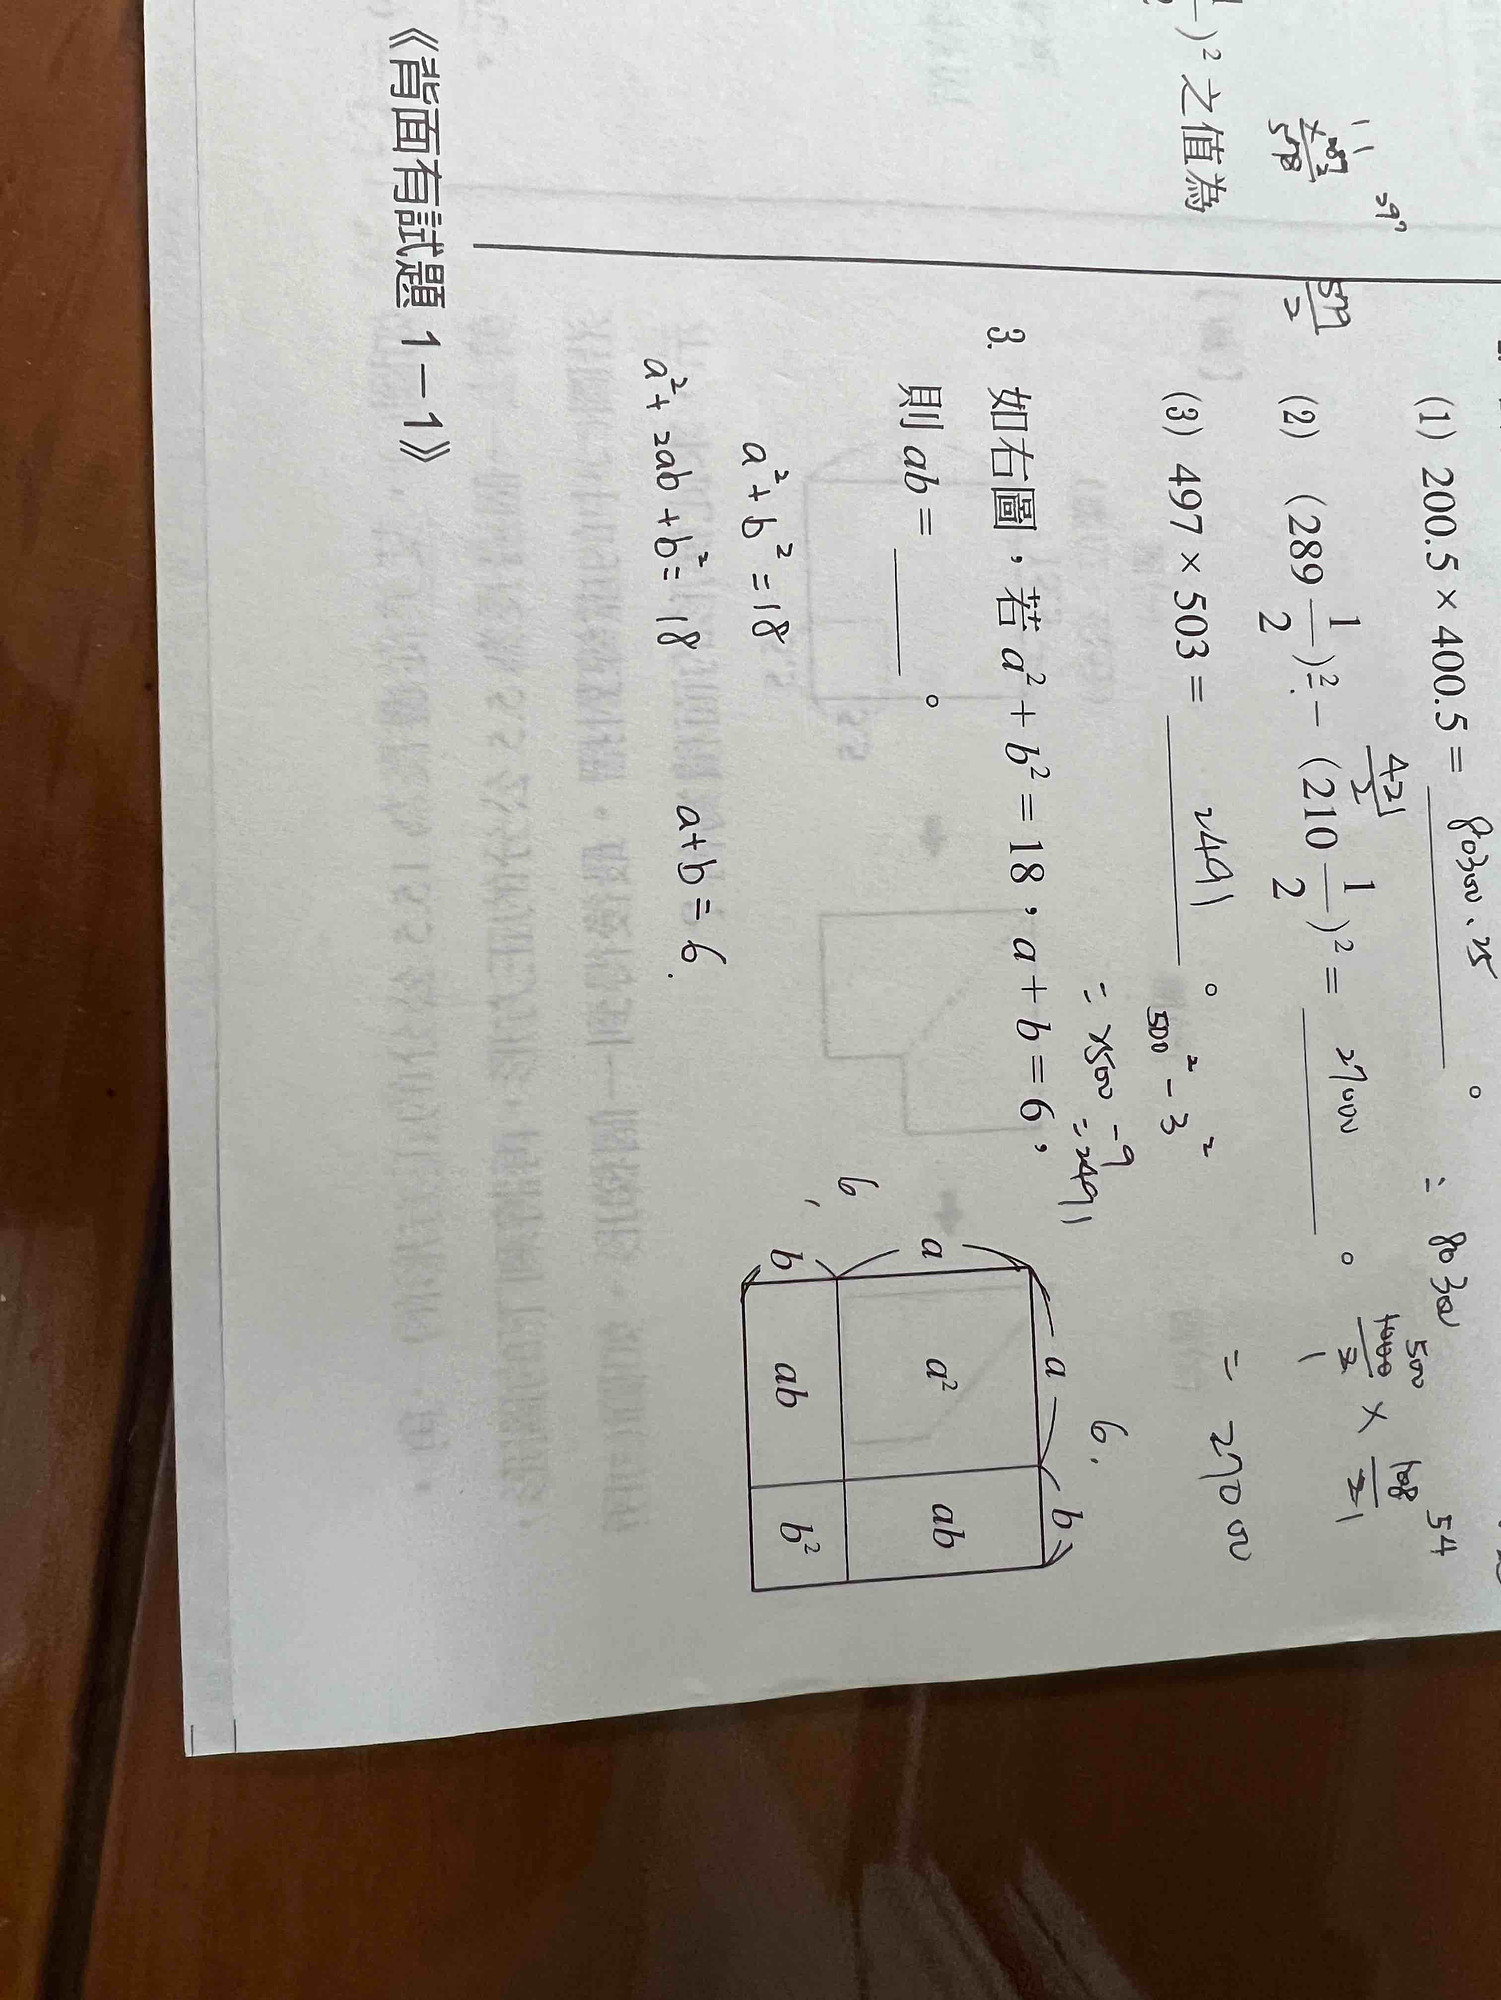 )² 之值為
289
× 2
578
579
2
(1) 200.5 × 400.5 = 80300.25 。
= 8030
421
2
(2) (289 1/2)² − (210 1/2)² = 27000 。
500
1000
2
1
×
108
2
1
54
= 27000
(3) 497 × 503 = 2491 。
500² − 3²
= 2500 − 9 = 2491
3. 如右圖，若 a² + b² = 18，a + b = 6，
則 ab = ____ 。
a² + b² = 18
a² + 2ab + b² = 18
a + b = 6.
6.
a b
6
a a² ab
b ab b²
《背面有試題 1－1》